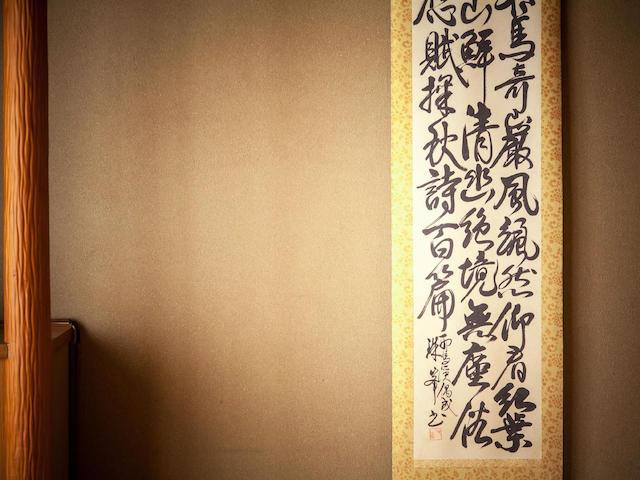 馬奇巌風颯然仰看紅葉
山鮮清幽絶境無塵俗
応賦探秋詩百篇